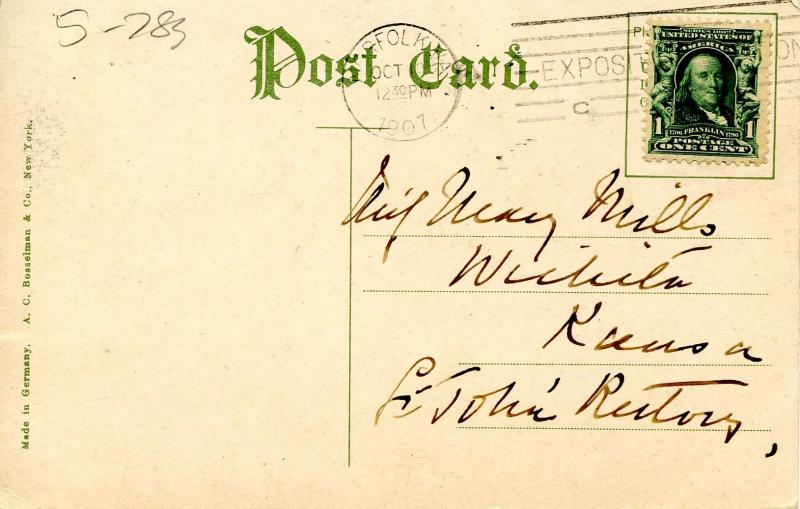 5-289
Post Card.
NORFOLK
OCT
12 30 PM
1907
EXPOSITION
SERIES 1902
UNITED STATES OF
AMERICA
1 1
1706 FRANKLIN 1790
POSTAGE
ONE CENT
Miss Mary Mills
Wichita
Kansa
St John' Rectory,
Made in Germany. A. C. Bosselman & Co., New York.